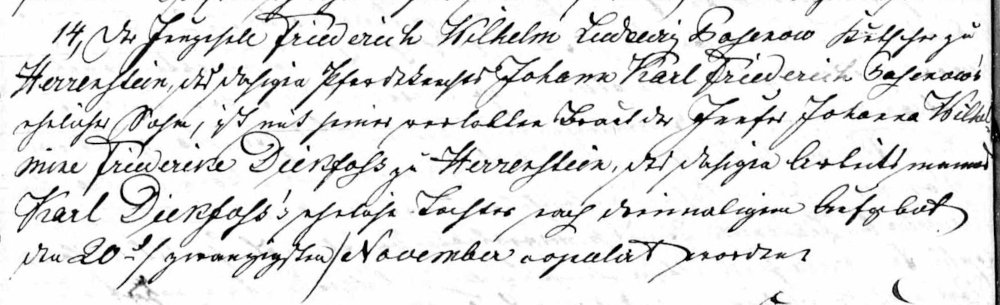 14, Der Junggesell Friederich Wilhelm Ludewig Pasenow Kutscher zu
Herrenstein, des dasigen Pferdeknechts Johann Karl Friederich Pasenow's
ehelicher Sohn, ist mit seiner verlobten Braut der Jungfer Johanna Wilhel-
mine Friederike Dickfoss zu Herrenstein, des dasigen Arbeitsmannes
Karl Dickfoss's eheliche Tochter nach dreimaligem Aufgebot
den 20t./ zwanzigsten/ November copulirt worden